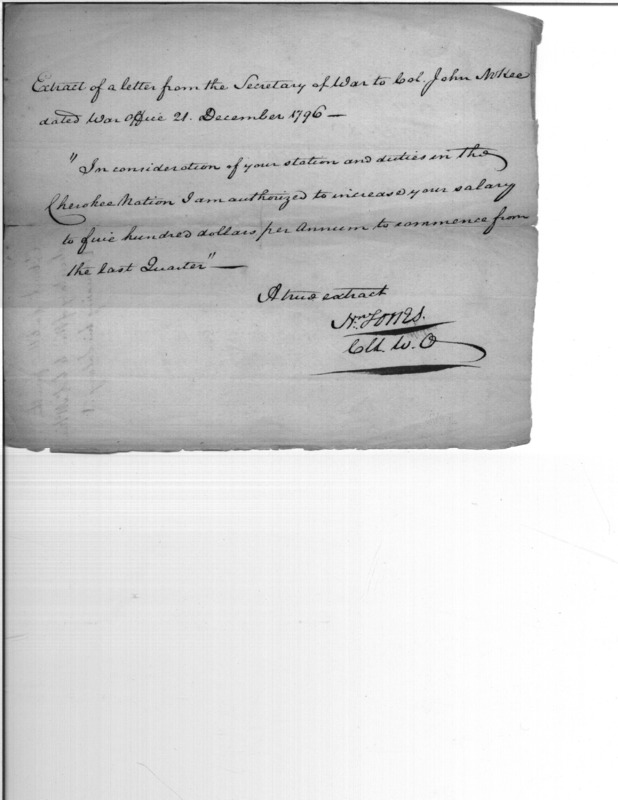 Extract of a letter from the Secretary of War to Col. John McKee
dated War Office 21. December 1796 —
"In consideration of your station and duties in the
Cherokee Nation I am authorized to increase your salary
to five hundred dollars per Annum to commence from
the last Quarter" —
A true extract
Wm Jones.
Clk. W. O